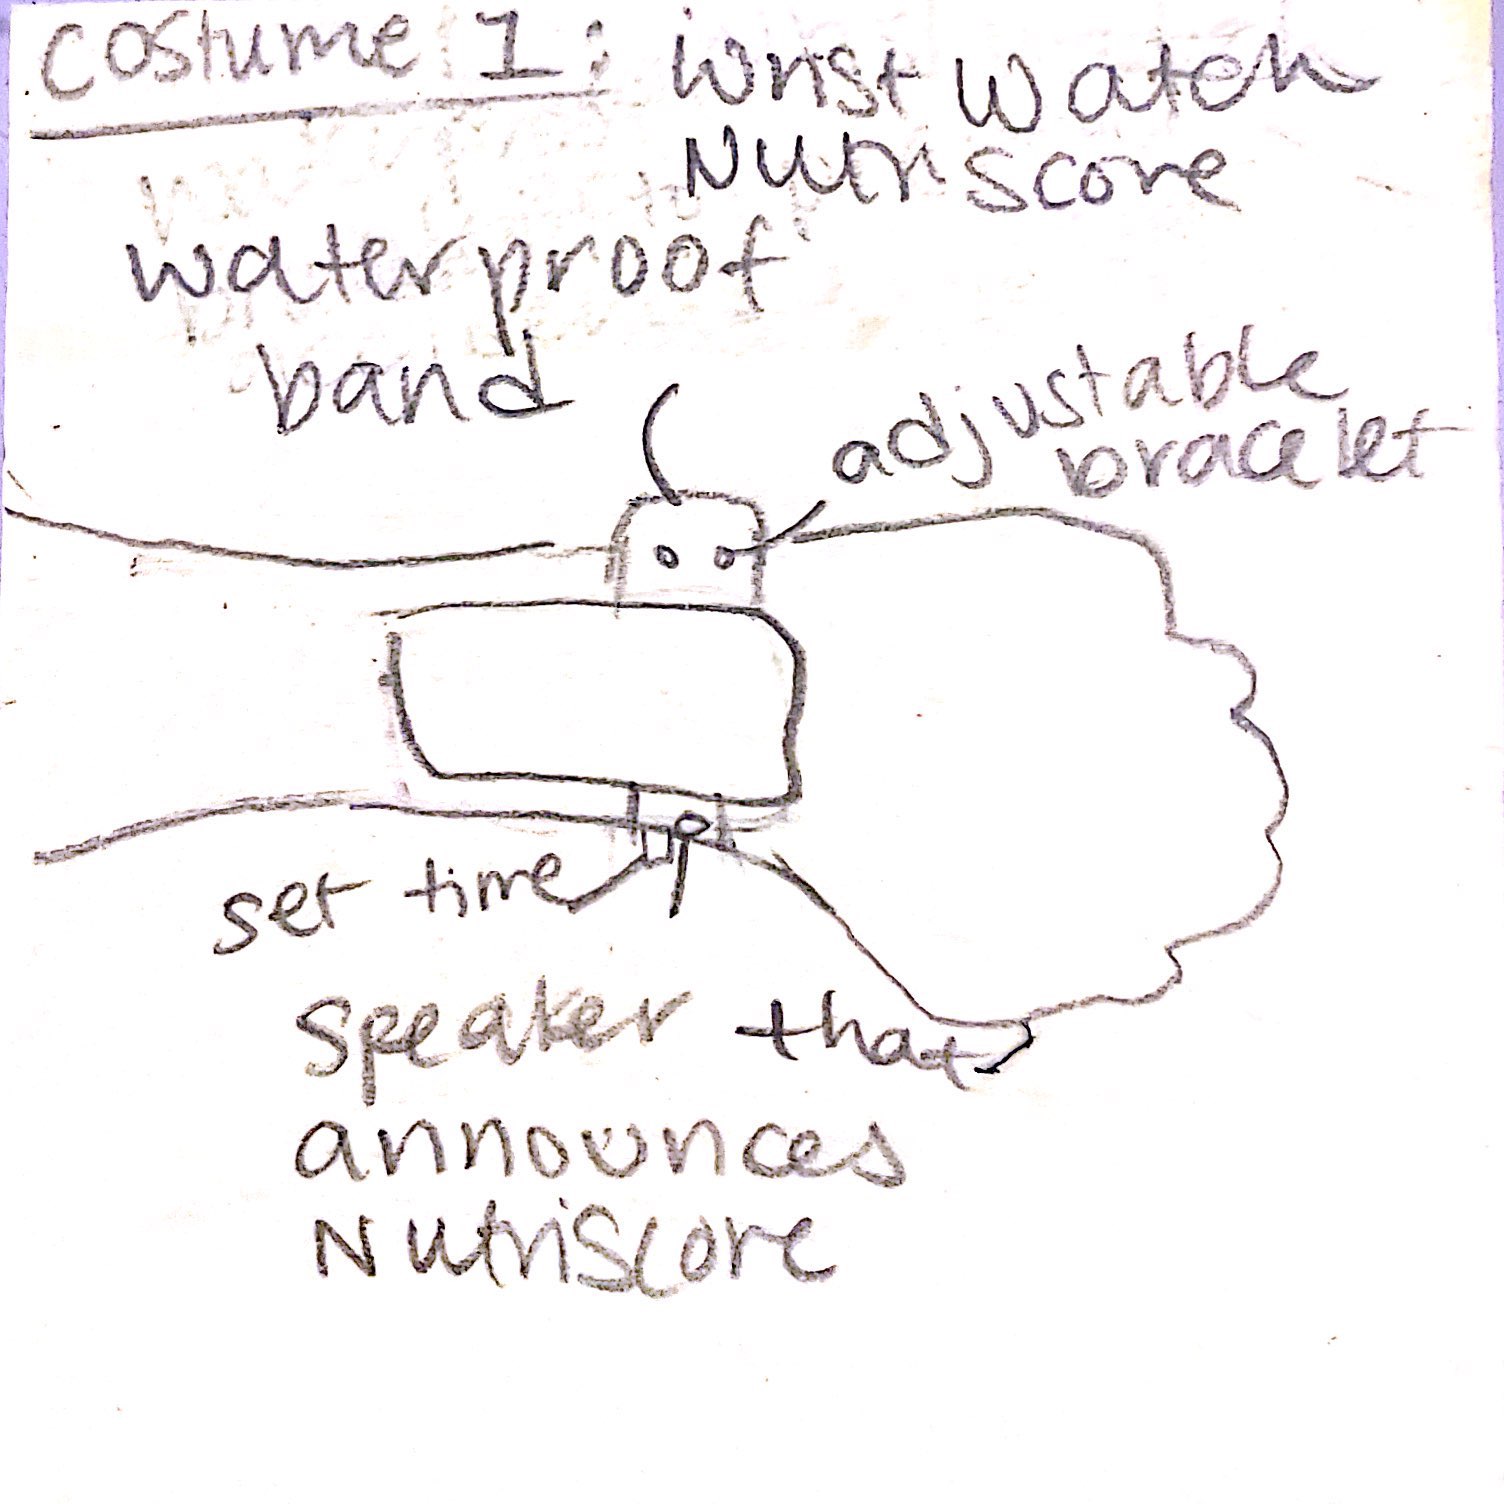 Costume 1: Wrist Watch
NutriScore
waterproof
band
adjustable
bracelet
set time
speaker that
announces
NutriScore